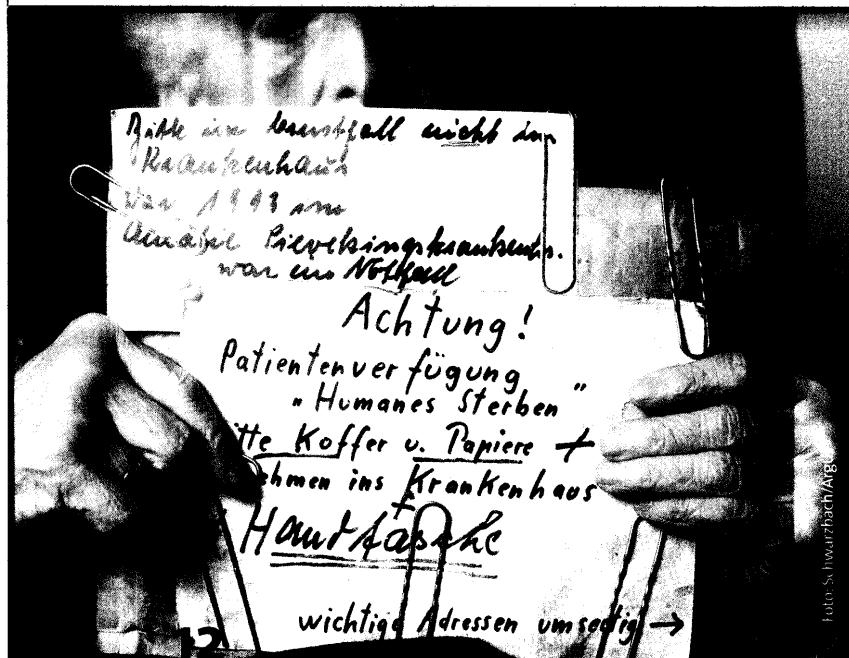 Bitte im Ernstfall nicht ins
Krankenhaus
war 1993 im
Amalie Sievekingkrankenhs.
war ein Notfall
Achtung!
Patientenverfügung
„Humanes Sterben"
itte Koffer u. Papiere +
ehmen ins Krankenhaus
+
Handtasche
wichtige Adressen umseitig →
Foto: Schwarzbach/Arg